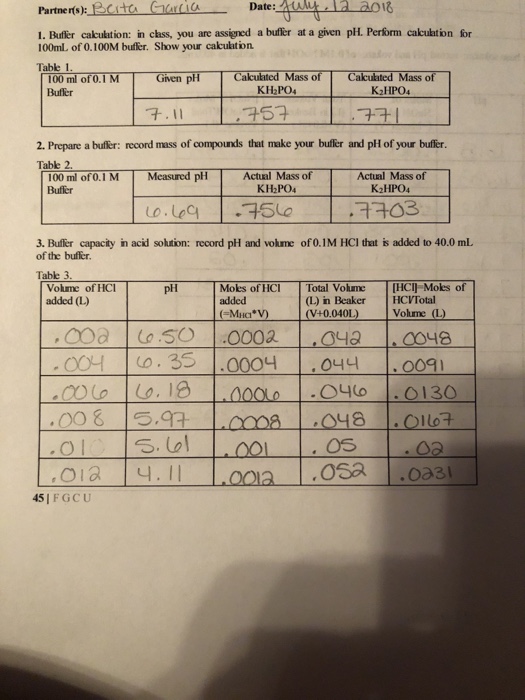 Partner(s): Berta Garcia Date: July, 12 2018
1. Buffer calculation: in class, you are assigned a buffer at a given pH. Perform calculation for
100mL of 0.100M buffer. Show your calculation.
Table 1.
100 ml of 0.1 M Buffer Given pH Calculated Mass of KH₂PO₄ Calculated Mass of K₂HPO₄
7.11 .757 .771
2. Prepare a buffer: record mass of compounds that make your buffer and pH of your buffer.
Table 2.
100 ml of 0.1 M Buffer Measured pH Actual Mass of KH₂PO₄ Actual Mass of K₂HPO₄
6.69 .756 .7703
3. Buffer capacity in acid solution: record pH and volume of 0.1M HCl that is added to 40.0 mL
of the buffer.
Table 3.
Volume of HCl added (L) pH Moles of HCl added (=M_HCl*V) Total Volume (L) in Beaker (V+0.040L) [HCl]=Moles of HCl/Total Volume (L)
.002 6.50 .0002 .042 .0048
.004 6.35 .0004 .044 .0091
.006 6.18 .0006 .046 .0130
.008 5.97 .0008 .048 .0167
.01 5.61 .001 .05 .02
.012 4.11 .0012 .052 .0231
45 | FGCU